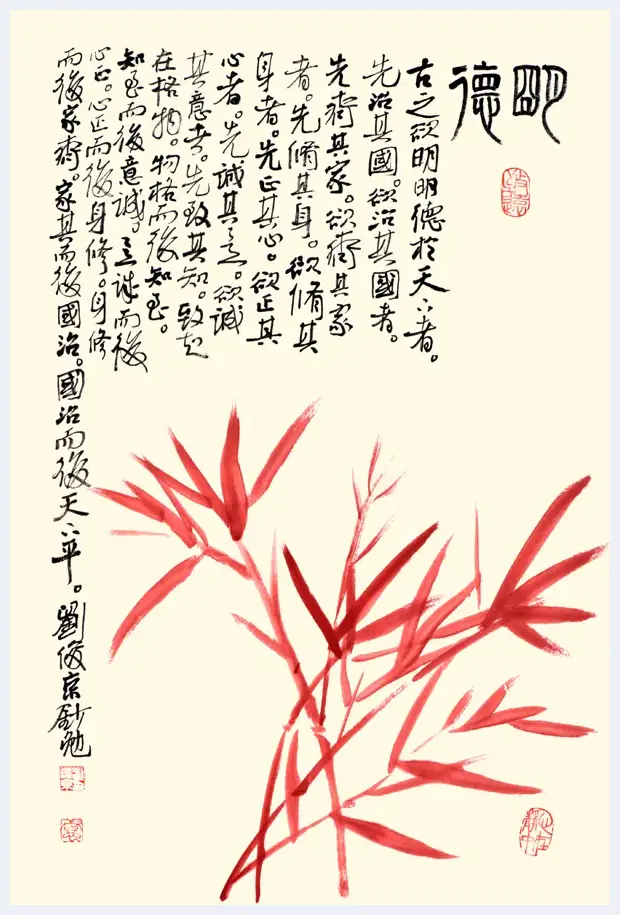 朙德
古之欲明明德於天下者。
先治其國。欲治其國者。
先齊其家。欲齊其家
者。先脩其身。欲脩其
身者。先正其心。欲正其
心者。先誠其意。欲誠
其意者。先致其知。致知
在格物。物格而後知至。
知至而後意誠。意誠而後
心正。心正而後身修。身修
而後家齊。家其而後國治。國治而後天下平。劉俊京鈔勉